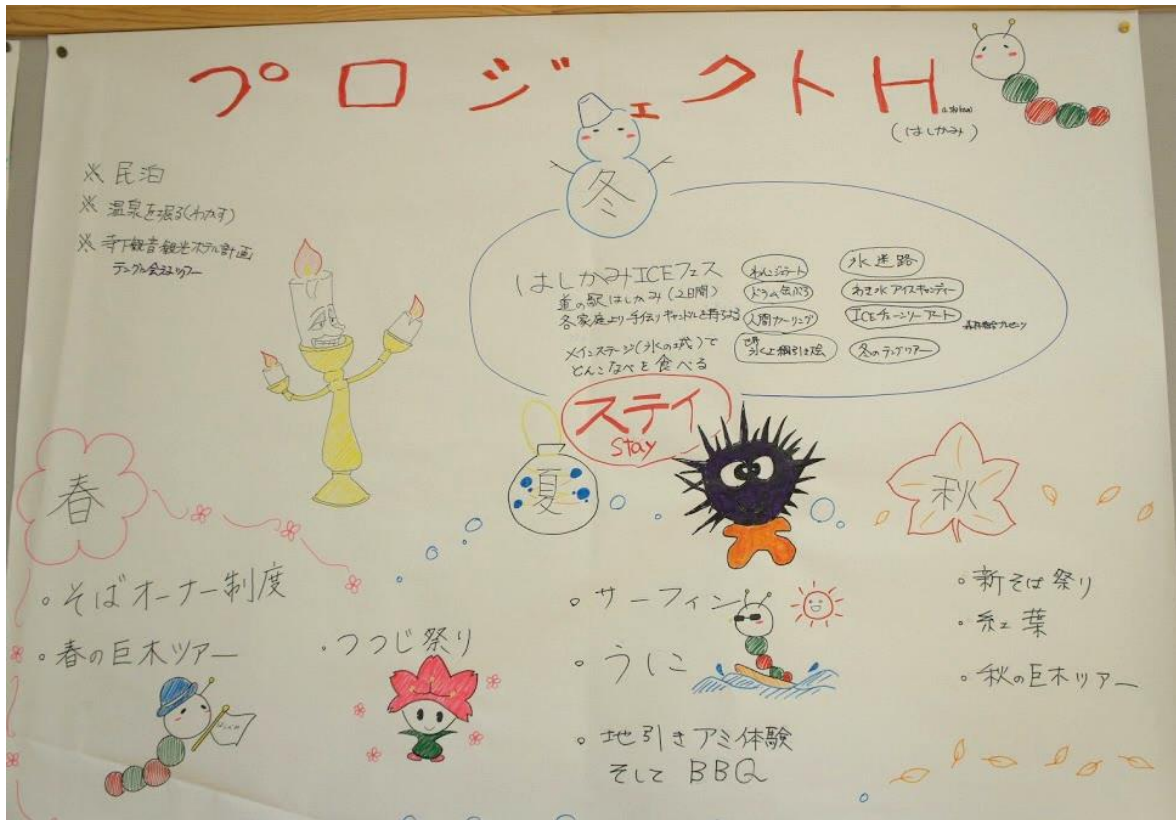 プロジェクトH
(はしかみ)
冬
※ 民泊
※ 温泉を掘る(わかす)
※ 寺下観音観光ホテル計画
テングに会えるツアー
はしかみICEフェス
道の駅はしかみ(2日間)
各家庭より手作りキャンドルを持ちよる
メインステージ(氷の城)で
どんこなべを食べる
わんこジェラート
ドラム缶ぶろ
人間カーリング
世界氷上綱引き大会
氷迷路
わき水アイスキャンディー
ICEチェーンソーアート
冬のランプツアー
ステイ
Stay
春
・そばオーナー制度
・春の巨木ツアー
・つつじ祭り
夏
・サーフィン
・うに
・地引きアミ体験
そして BBQ
秋
・新そば祭り
・紅葉
・秋の巨木ツアー